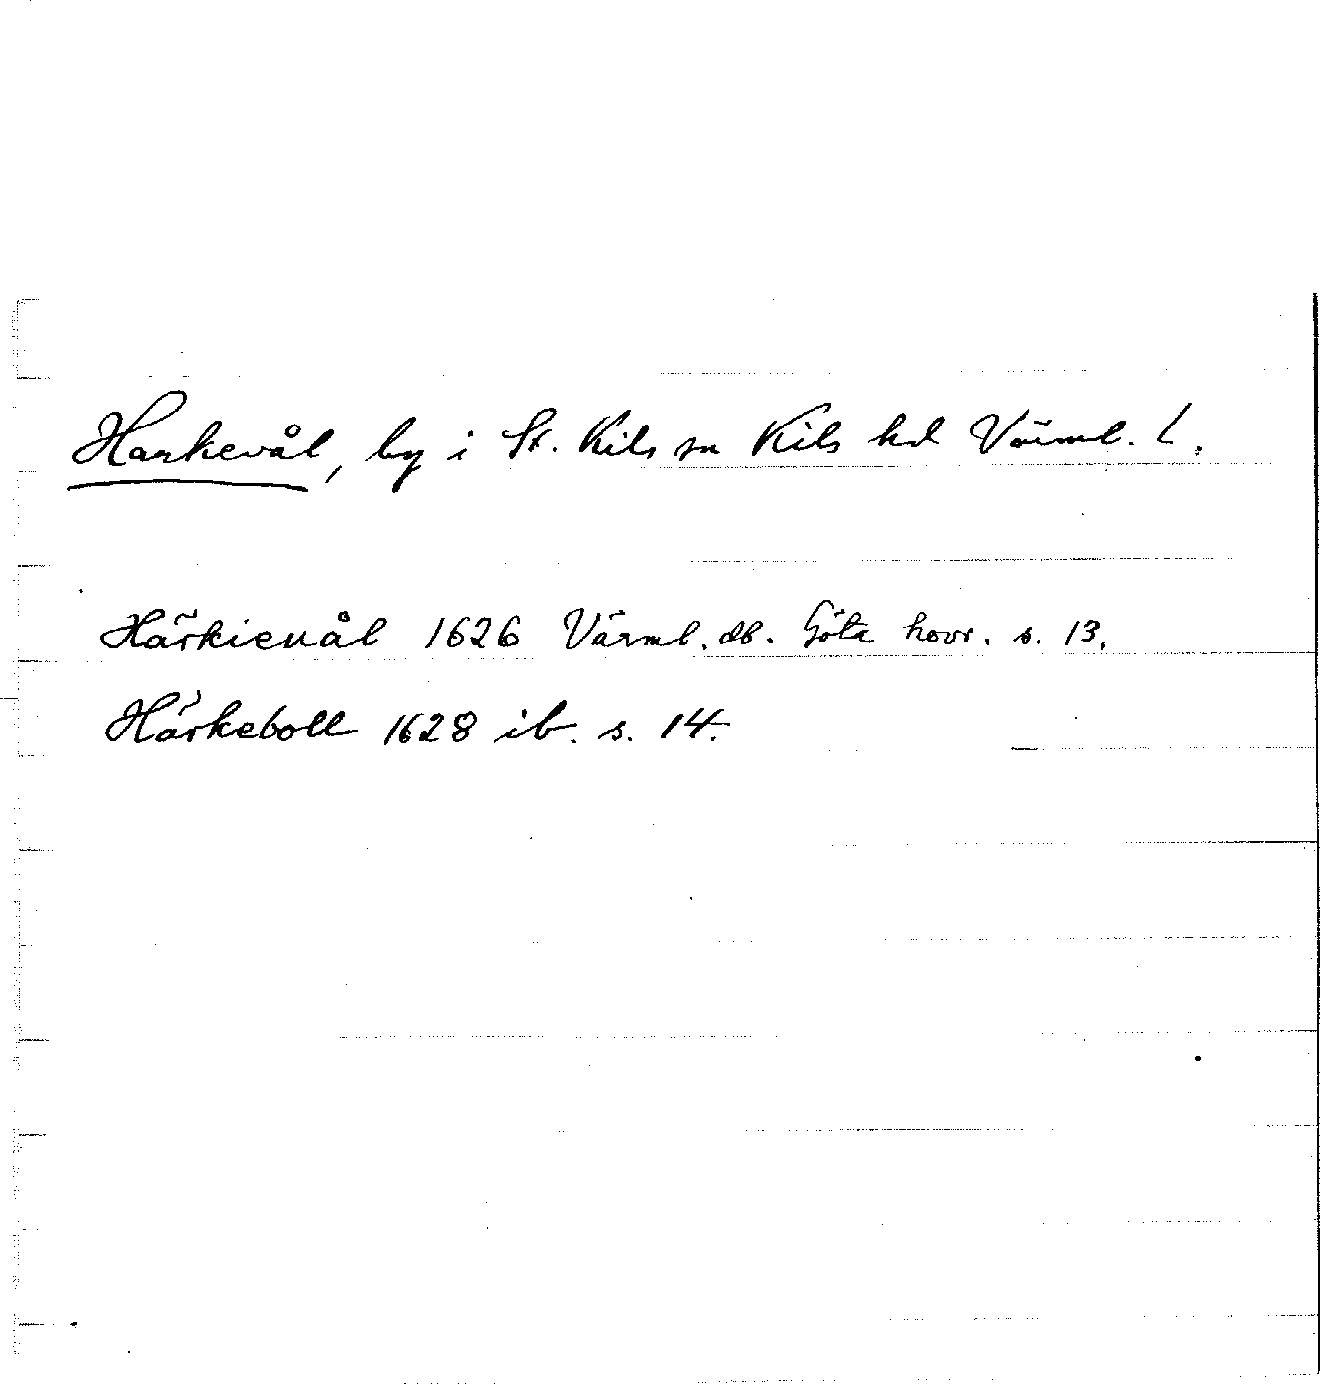 Harkevål, by i St. Kils sn Kils hd Värml. L.
Härkieuål 1626 Värml. db. Göta hovr. s. 13.
Härkeboll 1628 ib. s. 14.